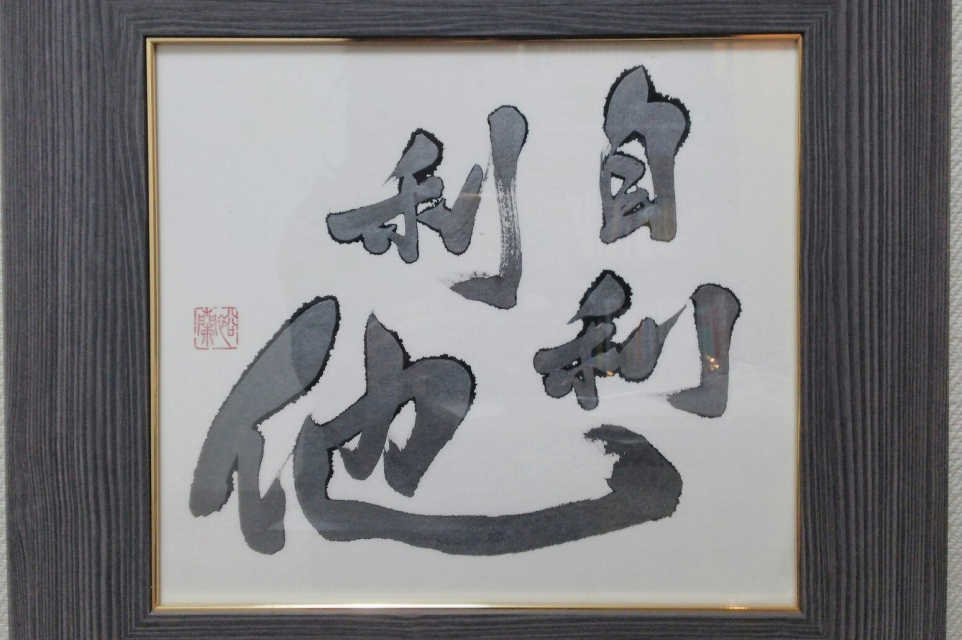 自利
利他